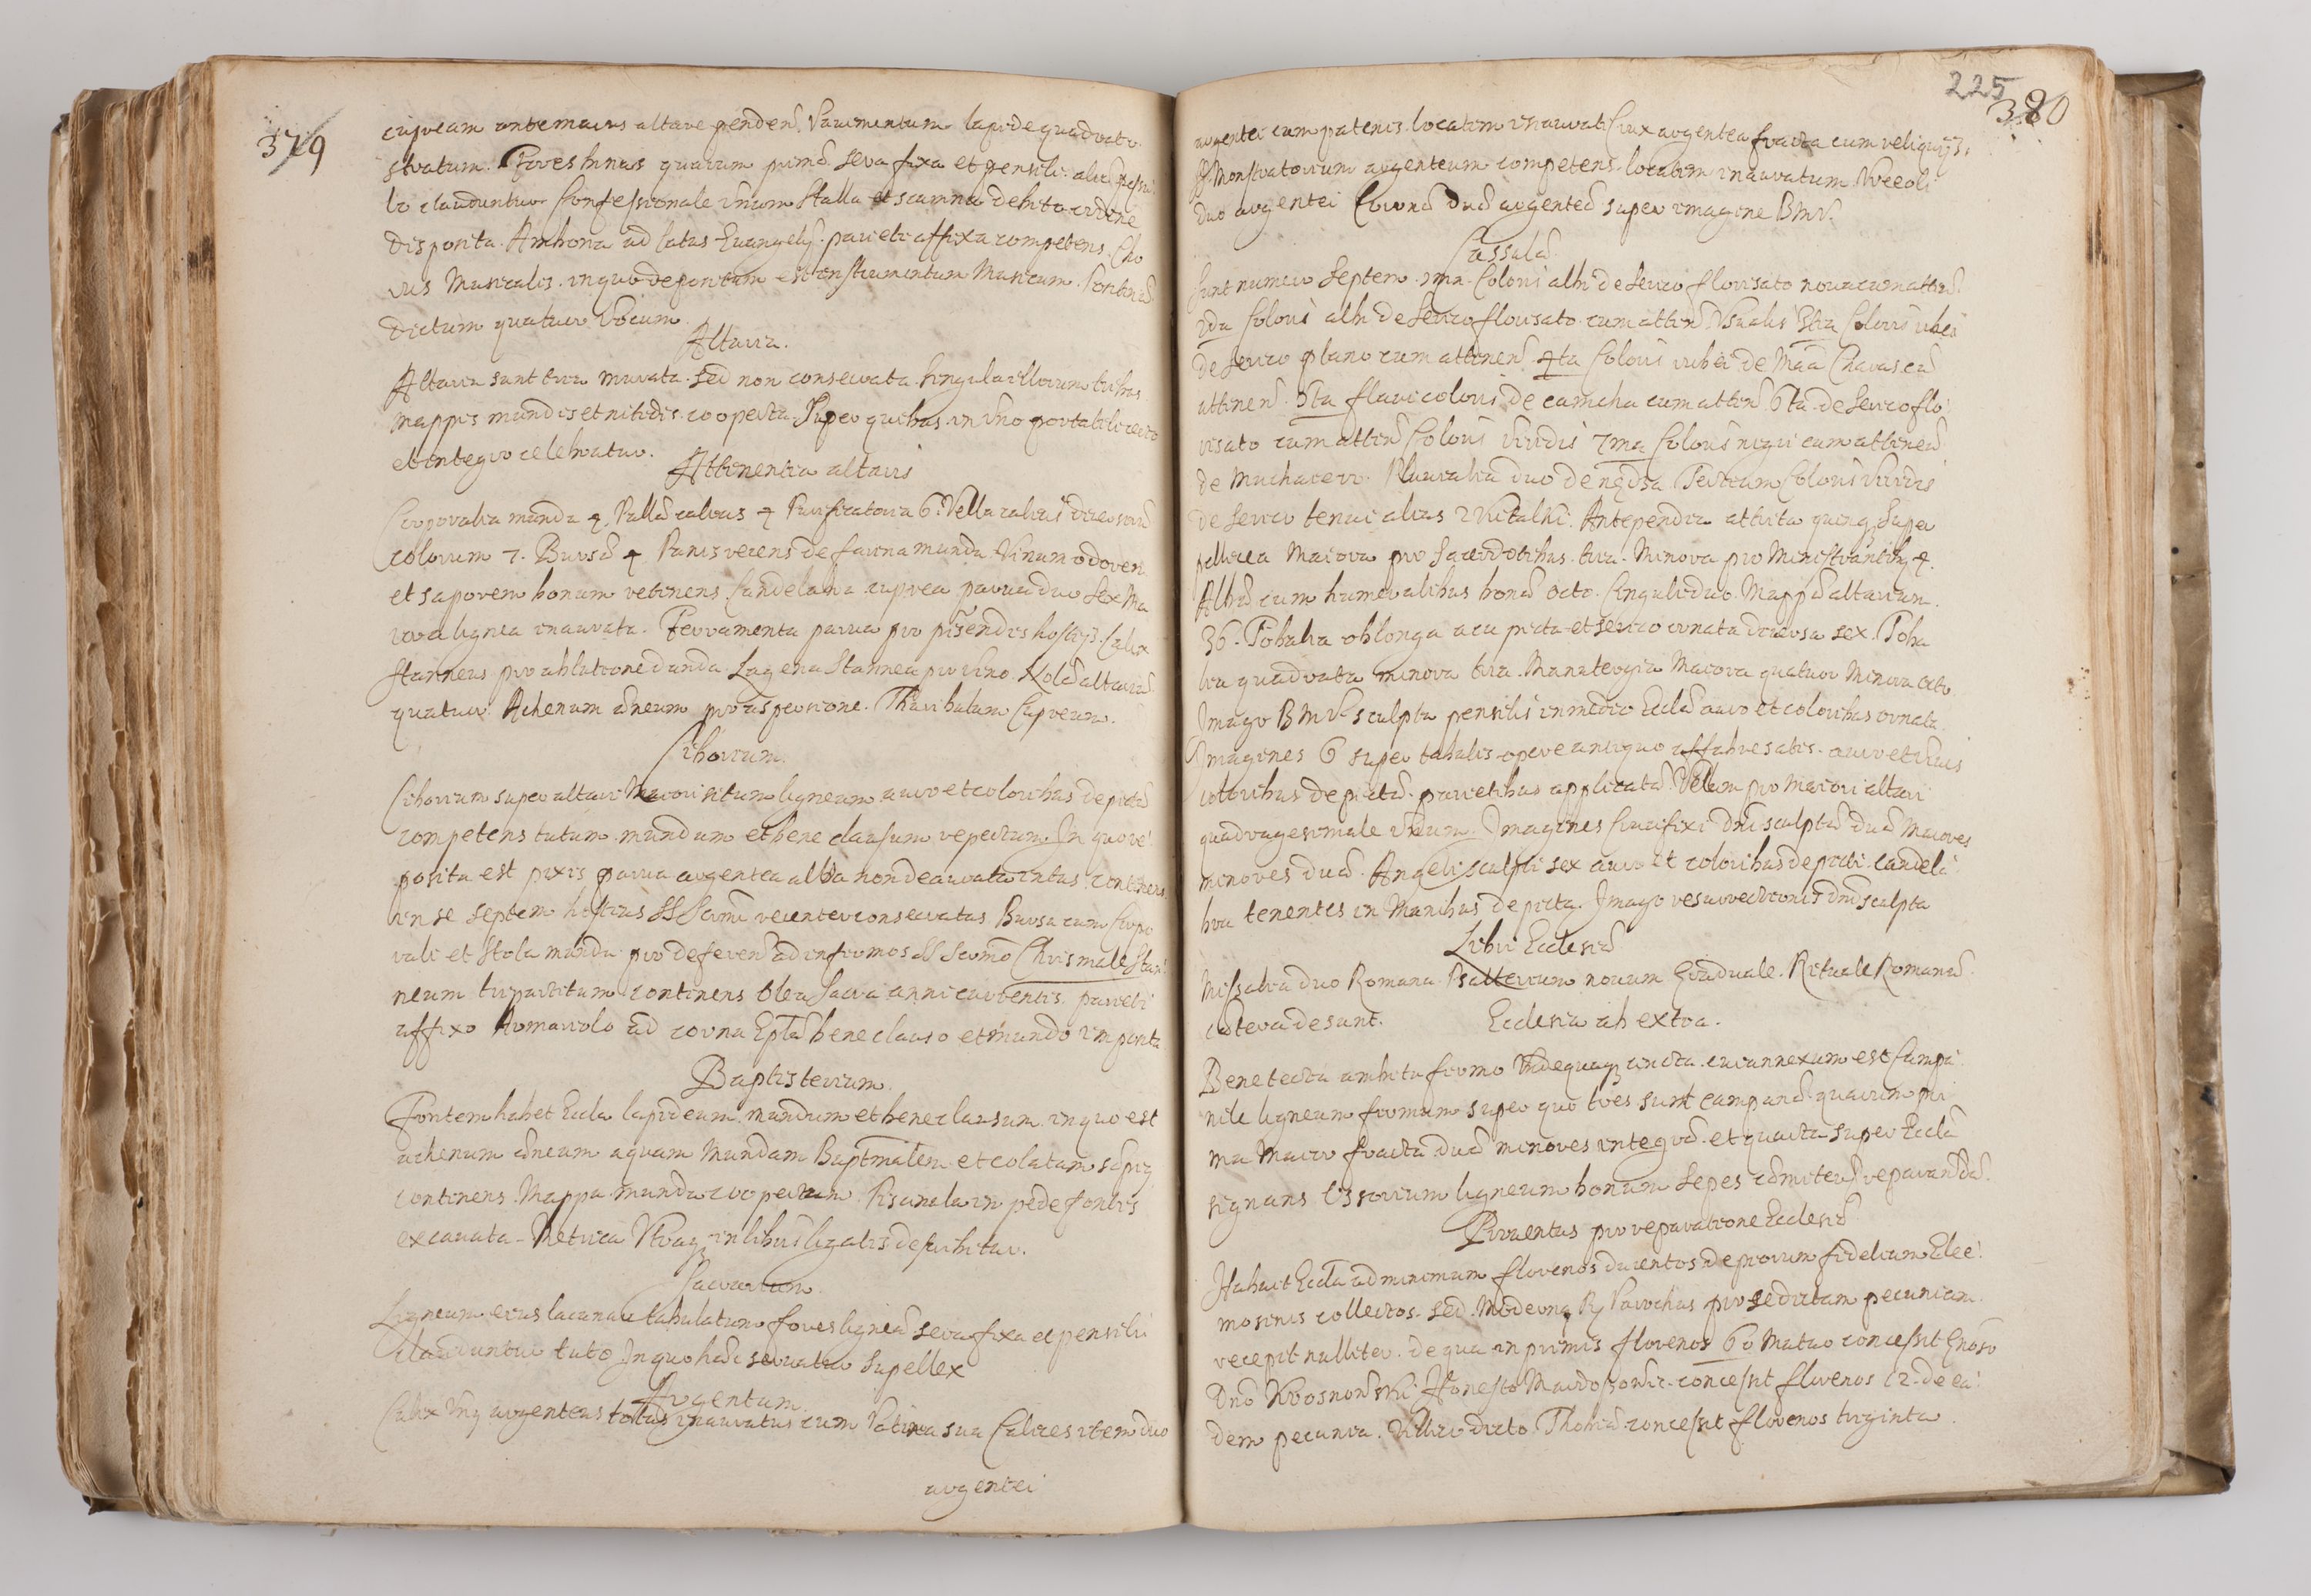 379
cupream ante maius altare penden. Pavimentum lapide quadrato
stratum. Fores binas quarum primæ sera fixa et pensili. aliæ pessu
lo clauduntur Confessionale unum Stalla et scamna debito ordine
disposita. Ambona ad latus Evangelij parieti affixa competens. Cho
rus Musicalis. in quo depositum est instrumentum Musicum. Positivũ
dictum quatuor Vocum.
Altaria.
Altaria sunt tria murata. sed non consecrata. singula illorum tribus
mappis mundis et nitidis. cooperta. Super quibus. in uno portatili
et integro celebratur.
Attinentia altaris
Corporalia munda 4. Pallæ calicis 4 Purificatoria 6. Vella calicis diversorũ
colorum 7. Bursæ 4 Panis recens de farina munda Vinum odorem
et saporem bonum retinens. Candelabra cuprea parva duo Sex Ma
iora lignea inaurata. Ferramenta parva pro pisendis hostijs. Calix
stanneus pro ablutione danda. Lagena stannea pro vino. Nolæ altaris
quatuor Ahenum æneum pro aspersione. Thuribulum Cupreum.
Ciborium.
Ciborium super altari Maiori situm ligneum auro et coloribus depictũ
competens tutum mundum et bene clausum repertum. In quo re
posita est pixis parva argentea alba non deaurata intus. continens
in se septem hostias SSScimi recenter consecratas Bursa cum Corpo
rali et stola munda pro deferenđ ad infirmos SSScimo Chrismale stan
neum tripartitum continens Olea Sacra anni currentis. parieti
affixo Armariolo ad cornu Eplæ bene clauso et mundo imposita
Baptisterium.
Fontem habet Eccla lapideum mundum et bene clausum. in quo est
ahenum æneum aquam Mundam Baptmalem et colatam semp
continens. Mappa munda coopertum. Piscinula in pede fontis
excavata. Metrica Utraq in libris ligatis describitur.
Sacrarium.
Ligneum eius lacunar tabulatum fores ligneæ sera fixa et pensili
clauduntur tuto In quo hæc servatur Supellex
Argentum.
Calix Unq argenteus totus inauratus cum Patina sua Calices item duo
argentei
225
380
argentei cum patenis. locatim inaurati Crux argentea fracta cum reliquijs.
SS Monstratorium argenteum competens. locatim inauratum Urceoli
duo argentei Coronæ duæ argenteæ super imagine BMV.
Cassulæ
Sunt numero Septem. 1ma Coloris albi de serico florisato nova cum attinẽ
2da Coloris albi de serico florisato cum attinẽ Usualis 3tia Coloris rubei
de serico plano cum attinenẽ 4ta Coloris rubei de Maa Charas. cũ
attinenẽ. 5ta flavi coloris de camcha cum attinẽ 6ta de serico flo
risato cum attinẽ Coloris viridis 7ma Coloris nigri cum attinenẽ
de Muchaierr. Pluvialia duo de Tertium Coloris viridis
de serico tenui alias Kitalki. Antependia attrita quinq Super
pellicea Maiora pro Sacerdotibus tria. Minora pro Ministrantib 4.
Albæ cum humeralibus bonæ octo. Cinguli duo. Mappæ altarium
36. Tobalia oblonga acu picta et serico ornata diversa sex. Toba
lia quadrata minora tria. Manutergia Maiora quatuor Minora octo
Imago BMV sculpta pensilis in medio Ecclæ auro et coloribus ornata
Imagines 6 super tabulis opere antiquo affabre satis. auro et vivis
coloribus depictæ. parietibus applicatæ. Velum pro Maiori altari
quadragesimale unum. Imagines Crucifixi Dni sculptæ duæ Maiores
minores duæ. Angeli sculpti sex auro et coloribus depicti. candela
bra tenentes in Manibus depicta. Imago resurrectionis Dni sculpta
Libri Ecclesiæ
Missalia duo Romana Psalterium novum Graduale. Rituale Romanũ
cætera desunt.
Ecclesia ab extra.
Bene tecta ambitu firmo Undequaq cincta. cui annexum est Campa
nile ligneum firmum super quo tres sunt campanæ quarum pri
ma Maior fracta duæ minores integræ. et quarta super Ecclã
signans Ossorium ligneum bonum Sepes cæmiterij reparandæ.
Proventus pro reparatione Ecclesiæ
Habuit Eccla ad minimum florenos ducentos de piorum fidelium Elee
mosinis collectos. sed Modernq R Parochus pro se dictam pecuniam
recepit nulliter. de qua in primis florenos 60 Mutuo concessit Gnoso
Dno Krosnowski. Honesto concessit florenos 12. de ea
dem pecunia. Villico dicto Thomæ concessit florenos triginta.